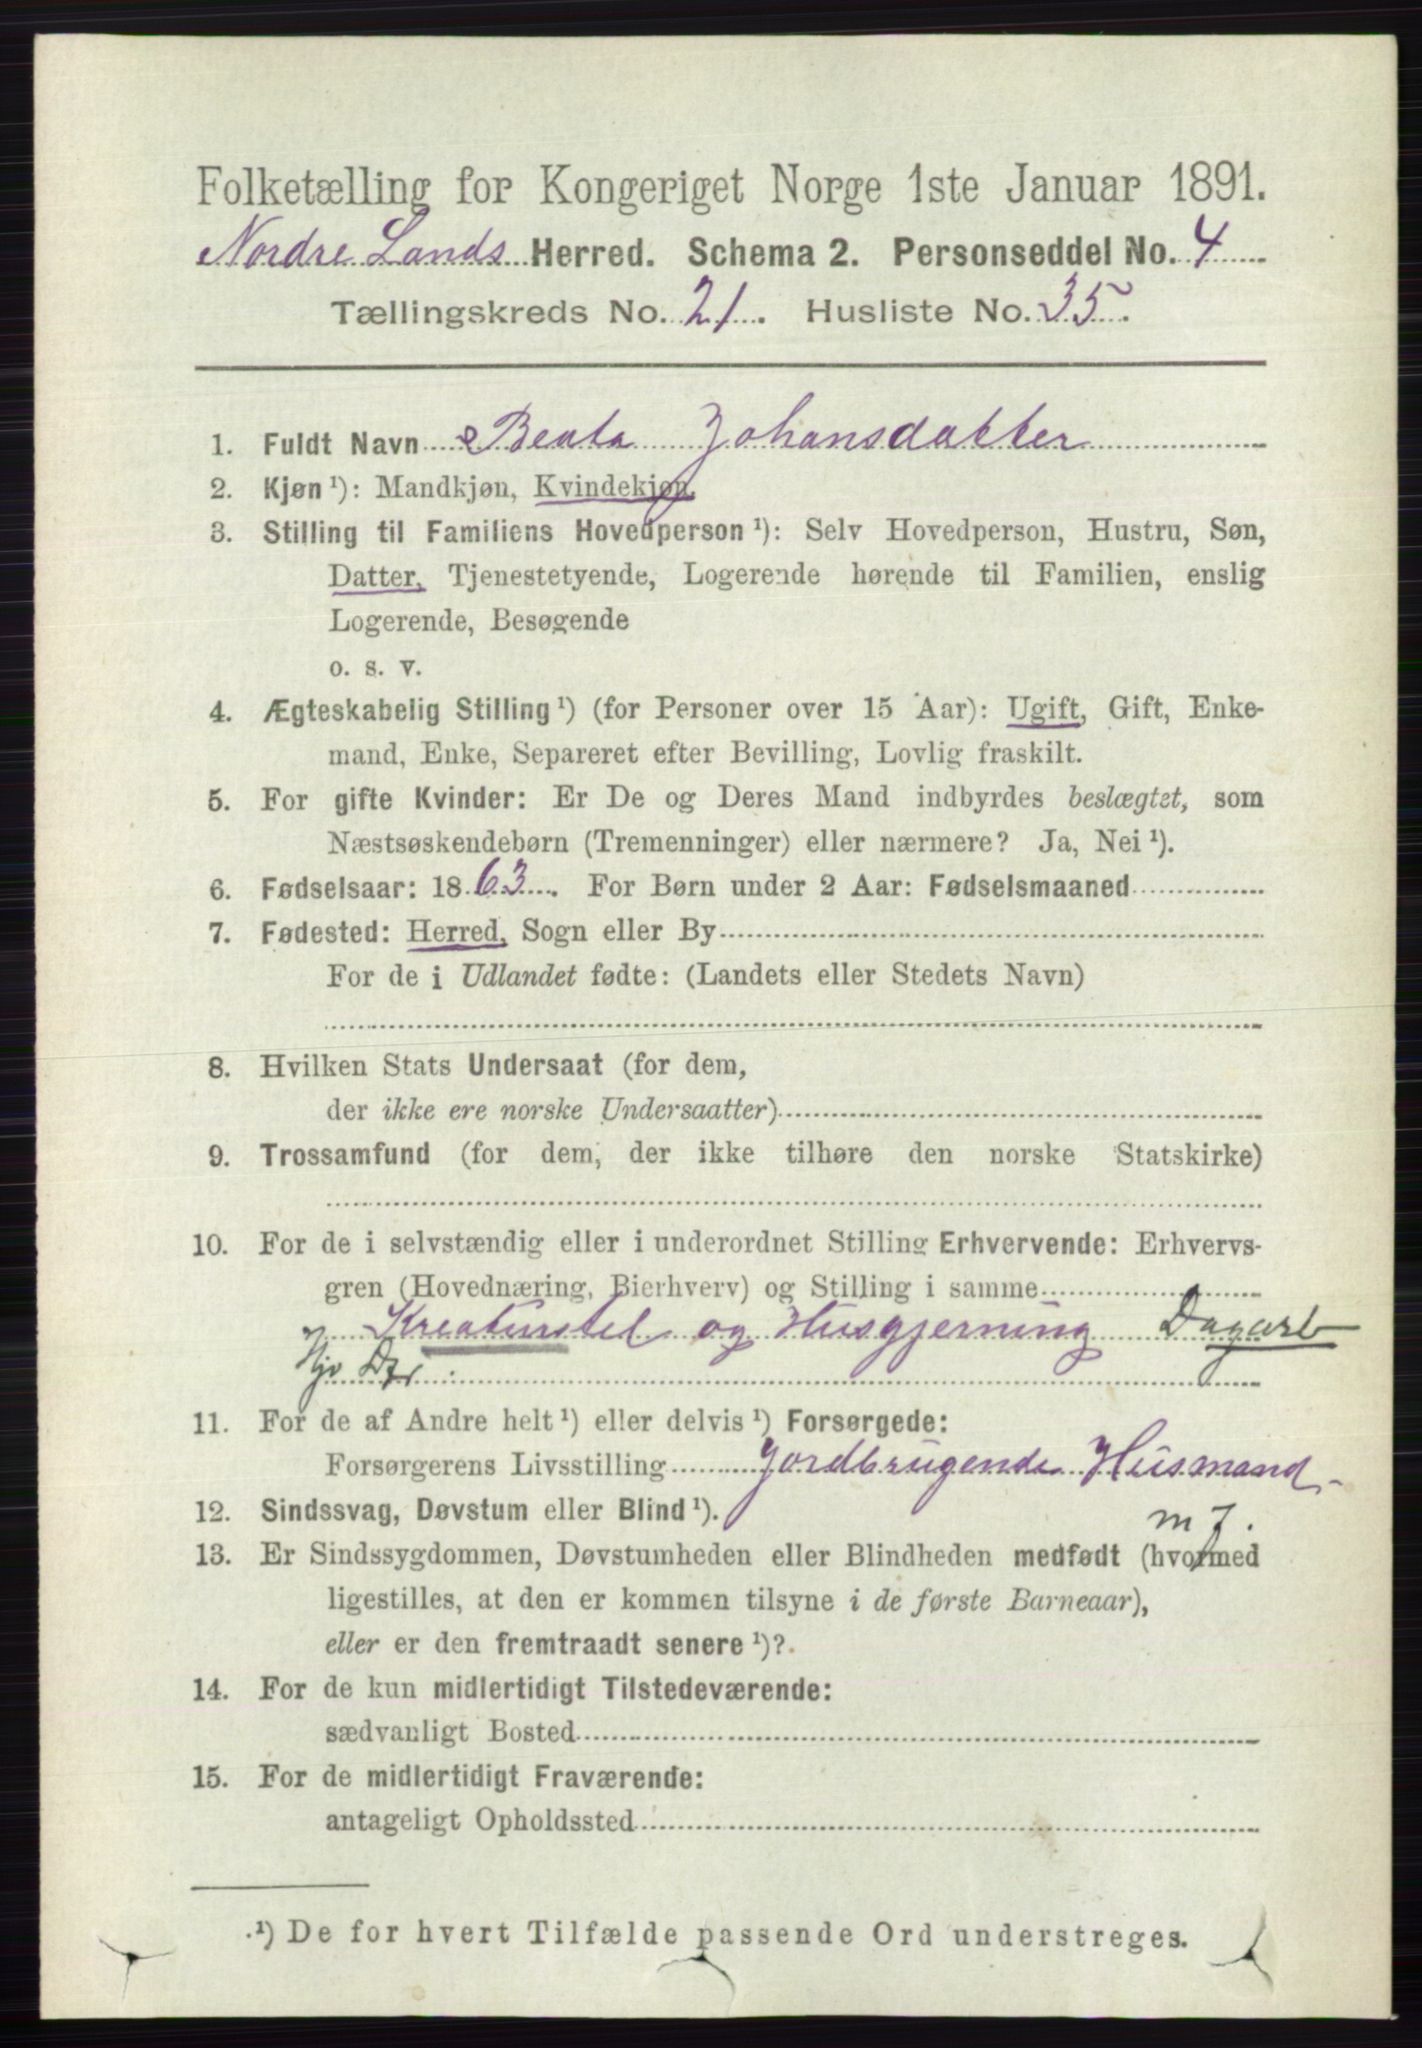 Folketælling for Kongeriget Norge 1ste Januar 1891.
Nordre Lands Herred. Schema 2. Personseddel No. 4
Tællingskreds No. 21. Husliste No. 35.
1. Fuldt Navn Beata Johansdatter
2. Kjøn ¹): Mandkjøn, Kvindekjøn.
3. Stilling til Familiens Hovedperson ¹): Selv Hovedperson, Hustru, Søn,
Datter, Tjenestetyende, Logerende hørende til Familien, enslig
Logerende, Besøgende
o. s. v.
4. Ægteskabelig Stilling ¹) (for Personer over 15 Aar): Ugift, Gift, Enke-
mand, Enke, Separeret efter Bevilling, Lovlig fraskilt.
5. For gifte Kvinder: Er De og Deres Mand indbyrdes beslægtet, som
Næstsøskendebørn (Tremenninger) eller nærmere? Ja, Nei ¹).
6. Fødselsaar: 1863. For Børn under 2 Aar: Fødselsmaaned
7. Fødested: Herred, Sogn eller By
For de i Udlandet fødte: (Landets eller Stedets Navn)
8. Hvilken Stats Undersaat (for dem,
der ikke ere norske Undersaatter)
9. Trossamfund (for dem, der ikke tilhøre den norske Statskirke)
10. For de i selvstændig eller i underordnet Stilling Erhvervende: Erhvervs-
gren (Hovednæring, Bierhverv) og Stilling i samme
Kreaturstel og Husgjerning Dagarb
Hjv Dtr.
11. For de af Andre helt ¹) eller delvis ¹) Forsørgede:
Forsørgerens Livsstilling Jordbrugende Husmand
12. Sindssvag, Døvstum eller Blind ¹).
m J.
13. Er Sindssygdommen, Døvstumheden eller Blindheden medfødt (hvormed
ligestilles, at den er kommen tilsyne i de første Barneaar),
eller er den fremtraadt senere ¹)?
14. For de kun midlertidigt Tilstedeværende:
sædvanligt Bosted
15. For de midlertidigt Fraværende:
antageligt Opholdssted
¹) De for hvert Tilfælde passende Ord understreges.